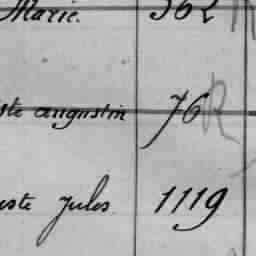 Marie. 362 R
ste augustin 76 R
uste Jules 1119